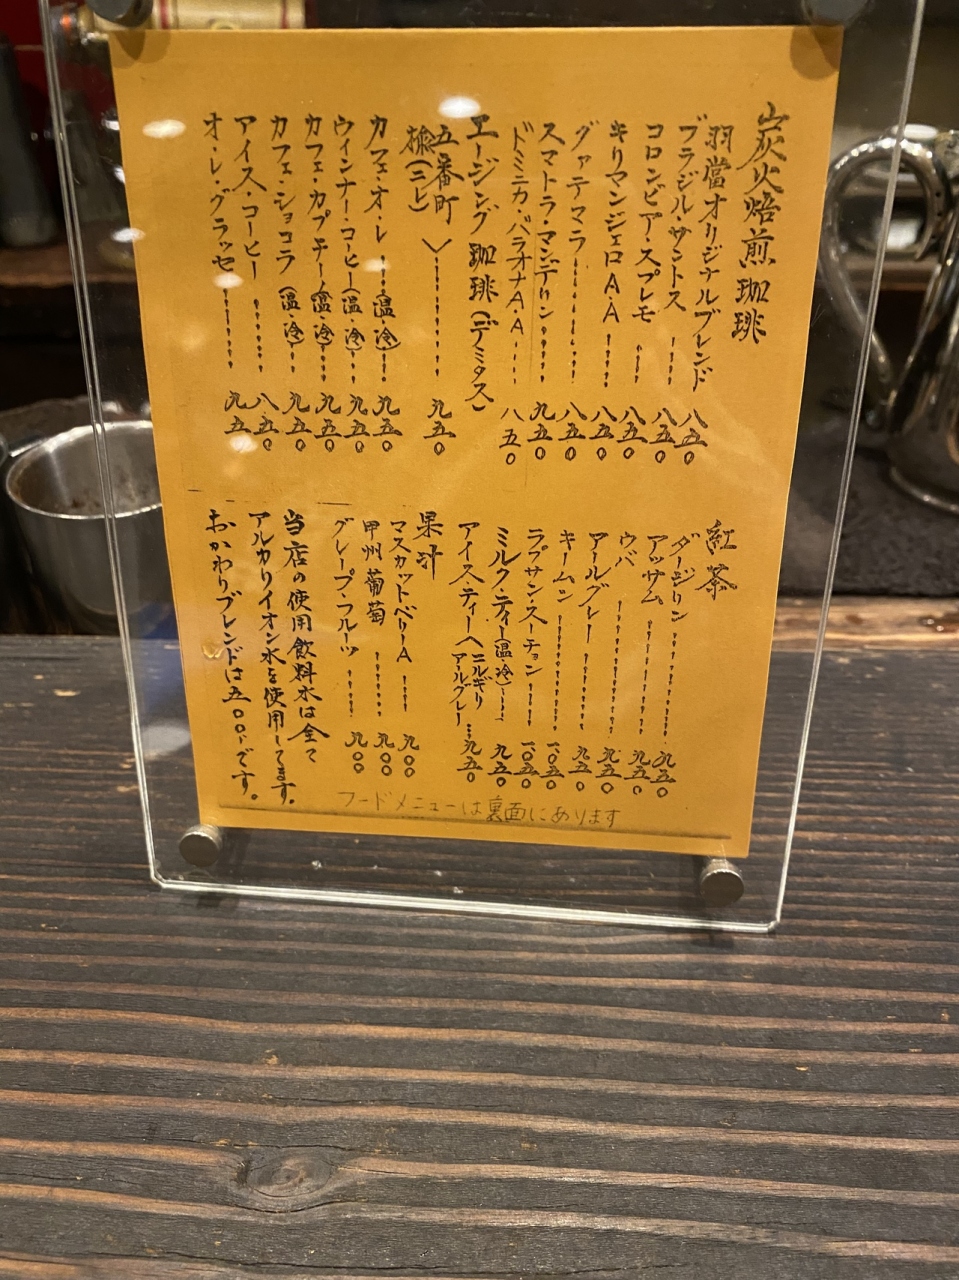 炭火焙煎珈琲
羽當オリジナルブレンド 八五〇
ブラジル・サントス 八五〇
コロンビア・スプレモ 八五〇
キリマンジェロA・A 八五〇
グァテマラ 八五〇
スマトラ・マンデリン 九五〇
ドミニカ・バラオナA・A 八五〇
エージング珈琲(デミタス)
五番町
楡(ニレ) 九五〇
カフェ・オ・レ(温・冷) 九五〇
ウィンナー・コーヒー(温・冷) 九五〇
カフェ・カプチーノ(温・冷) 九五〇
カフェ・ショコラ(温・冷) 九五〇
アイス・コーヒー 八五〇
オ・レ・グラッセ 九五〇
紅茶
ダージリン 九五〇
アッサム 九五〇
ウバ 九五〇
アールグレー 九五〇
キームン 一〇五〇
ラプサン・スーチョン 一〇五〇
ミルク・ティー(温・冷) 九五〇
アイス・ティー ニルギリ アールグレー 九五〇
果汁
マスカットベリーA 九〇〇
甲州葡萄 九〇〇
グレープ・フルーツ 九〇〇
当店の使用飲料水は全て
アルカリイオン水を使用してます。
おかわりブレンドは五〇〇です。
フードメニューは裏面にあります